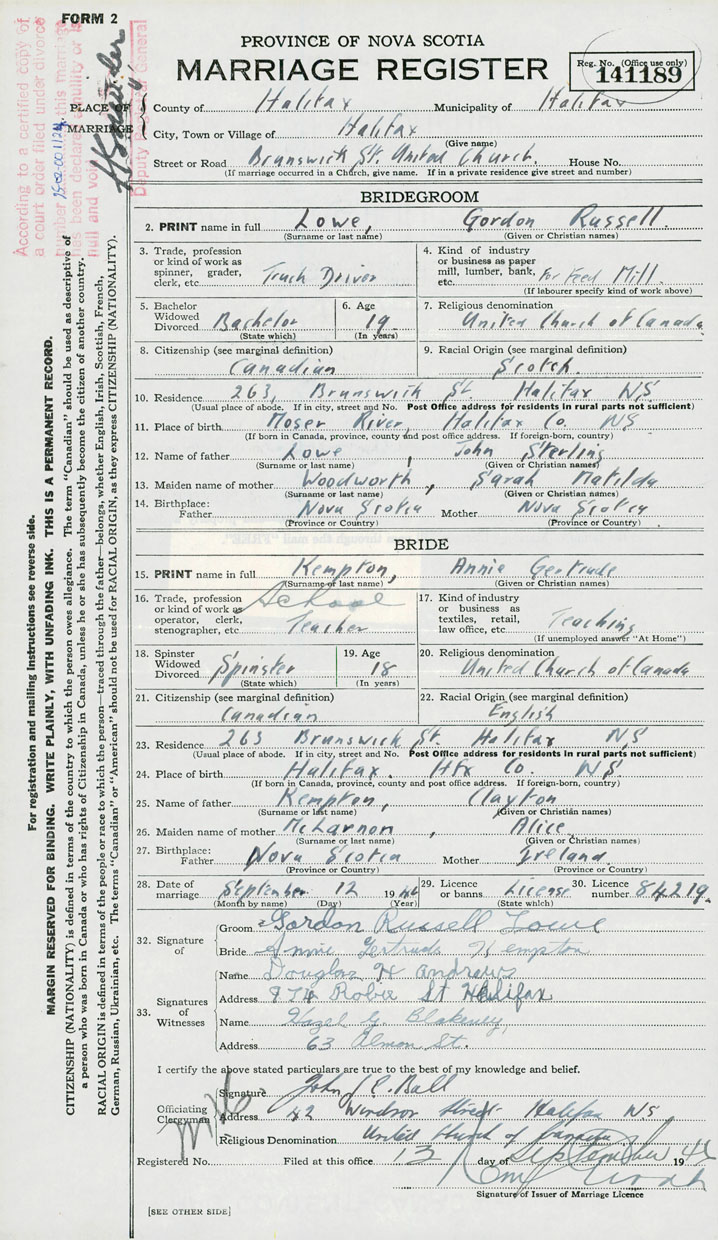 FORM 2
PROVINCE OF NOVA SCOTIA
MARRIAGE REGISTER
Reg. No. (Office use only)
141189
According to a certified copy of
a court order filed under divorce
number this marriage
has been declared a nullity or is
null and void
Deputy General
PLACE OF MARRIAGE
County of Halifax Municipality of Halifax
City, Town or Village of Halifax
(Give name)
Street or Road Brunswick St. United Church. House No.
(If marriage occurred in a Church, give name. If in a private residence give street and number)
BRIDEGROOM
2. PRINT name in full Lowe, Gordon Russell.
(Surname or last name) (Given or Christian names)
3. Trade, profession or kind of work as spinner, grader, clerk, etc. Truck Driver
4. Kind of industry or business as paper mill, lumber, bank, etc. For Feed Mill.
(If labourer specify kind of work above)
5. Bachelor Widowed Divorced Bachelor
(State which)
6. Age 19
(In years)
7. Religious denomination
United Church of Canada
8. Citizenship (see marginal definition)
Canadian
9. Racial Origin (see marginal definition)
Scotch.
10. Residence 263, Brunswick St. Halifax NS
(Usual place of abode. If in city, street and No. Post Office address for residents in rural parts not sufficient)
11. Place of birth Moser River, Halifax Co. NS
(If born in Canada, province, county and post office address. If foreign-born, country)
12. Name of father Lowe, John Sterling
(Surname or last name) (Given or Christian names)
13. Maiden name of mother Woodworth, Sarah Matilda
(Surname or last name) (Given or Christian names)
14. Birthplace: Father Nova Scotia Mother Nova Scotia
(Province or Country) (Province or Country)
BRIDE
15. PRINT name in full Kempton, Annie Gertrude
(Surname or last name) (Given or Christian names)
16. Trade, profession or kind of work as operator, clerk, stenographer, etc. School Teacher
17. Kind of industry or business as textiles, retail, law office, etc. Teaching
(If unemployed answer "At Home")
18. Spinster Widowed Divorced Spinster
(State which)
19. Age 18
(In years)
20. Religious denomination
United Church of Canada
21. Citizenship (see marginal definition)
Canadian
22. Racial Origin (see marginal definition)
English
23. Residence 263 Brunswick St. Halifax NS
(Usual place of abode. If in city, street and No. Post Office address for residents in rural parts not sufficient)
24. Place of birth Halifax. Hfx Co. NS.
(If born in Canada, province, county and post office address. If foreign-born, country)
25. Name of father Kempton, Clayton
(Surname or last name) (Given or Christian names)
26. Maiden name of mother McLarnon, Alice
(Surname or last name) (Given or Christian names)
27. Birthplace: Father Nova Scotia Mother Ireland
(Province or Country) (Province or Country)
28. Date of marriage September 12 1946
(Month by name) (Day) (Year)
29. Licence or banns License
(State which)
30. Licence number 84219.
32. Signature of
Groom Gordon Russell Lowe
Bride Annie Gertrude Kempton
33. Signatures of Witnesses
Name Douglas H Andrews
Address 974 Robie St Halifax
Name Hazel G. Blakeney,
Address 63 Almon St.
I certify the above stated particulars are true to the best of my knowledge and belief.
Officiating Clergyman
Signature John C. Ball
Address 42 Windsor Street Halifax NS
Religious Denomination United Church of Canada
Registered No. Filed at this office 13 day of September 1946
Signature of Issuer of Marriage Licence
[SEE OTHER SIDE]
For registration and mailing instructions see reverse side.
MARGIN RESERVED FOR BINDING. WRITE PLAINLY, WITH UNFADING INK. THIS IS A PERMANENT RECORD.
CITIZENSHIP (NATIONALITY) is defined in terms of the country to which the person owes allegiance. The term "Canadian" should be used as descriptive of
a person who was born in Canada or who has rights of Citizenship in Canada, unless he or she has subsequently become the citizen of another country.
RACIAL ORIGIN is defined in terms of the people or race to which the person—traced through the father—belongs, whether English, Irish, Scottish, French,
German, Russian, Ukrainian, etc. The terms "Canadian" or "American" should not be used for RACIAL ORIGIN, as they express CITIZENSHIP (NATIONALITY).